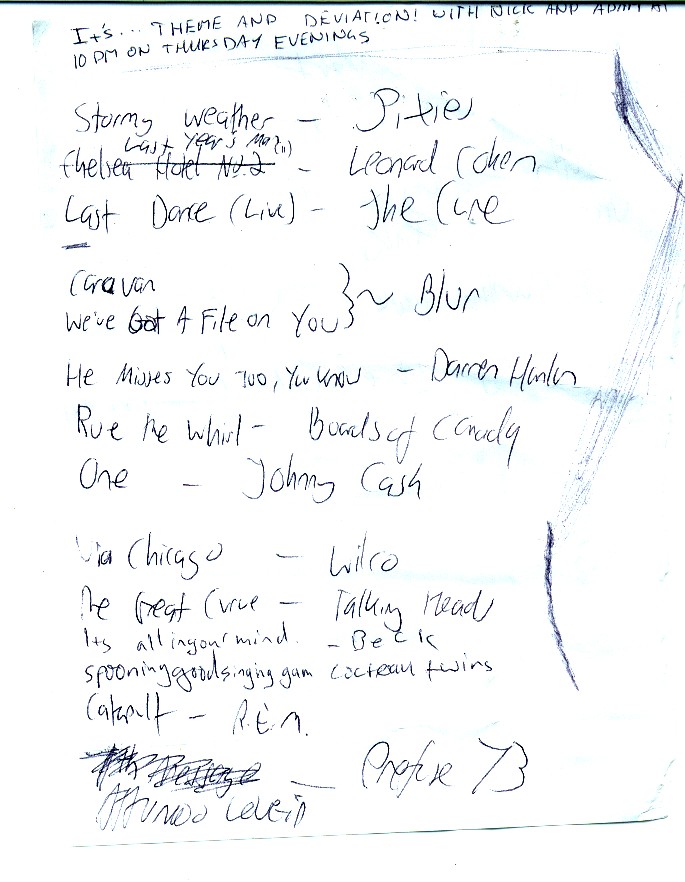 It's... THEME AND DEVIATION! WITH NICK AND ADAM AT
10 PM ON THURSDAY EVENINGS
Stormy weather — Pixies
Last Year's Man
Chelsea Hotel No. 2 - Leonard Cohen
Last Dance (Live) - The Cure
Caravan
We've Got A File on You } ~ Blur
He Misses You Too, You Know - Darren Hanlon
Rue the Whirl - Boards of Canada
One - Johnny Cash
Via Chicago - Wilco
The Great Curve - Talking Heads
Its all in your mind. - Beck
spooning good singing gum cocteau twins
Catapult - R.E.M.
— Prefuse 73